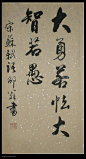 大勇若怯大
智若愚
宋蘇軾語書